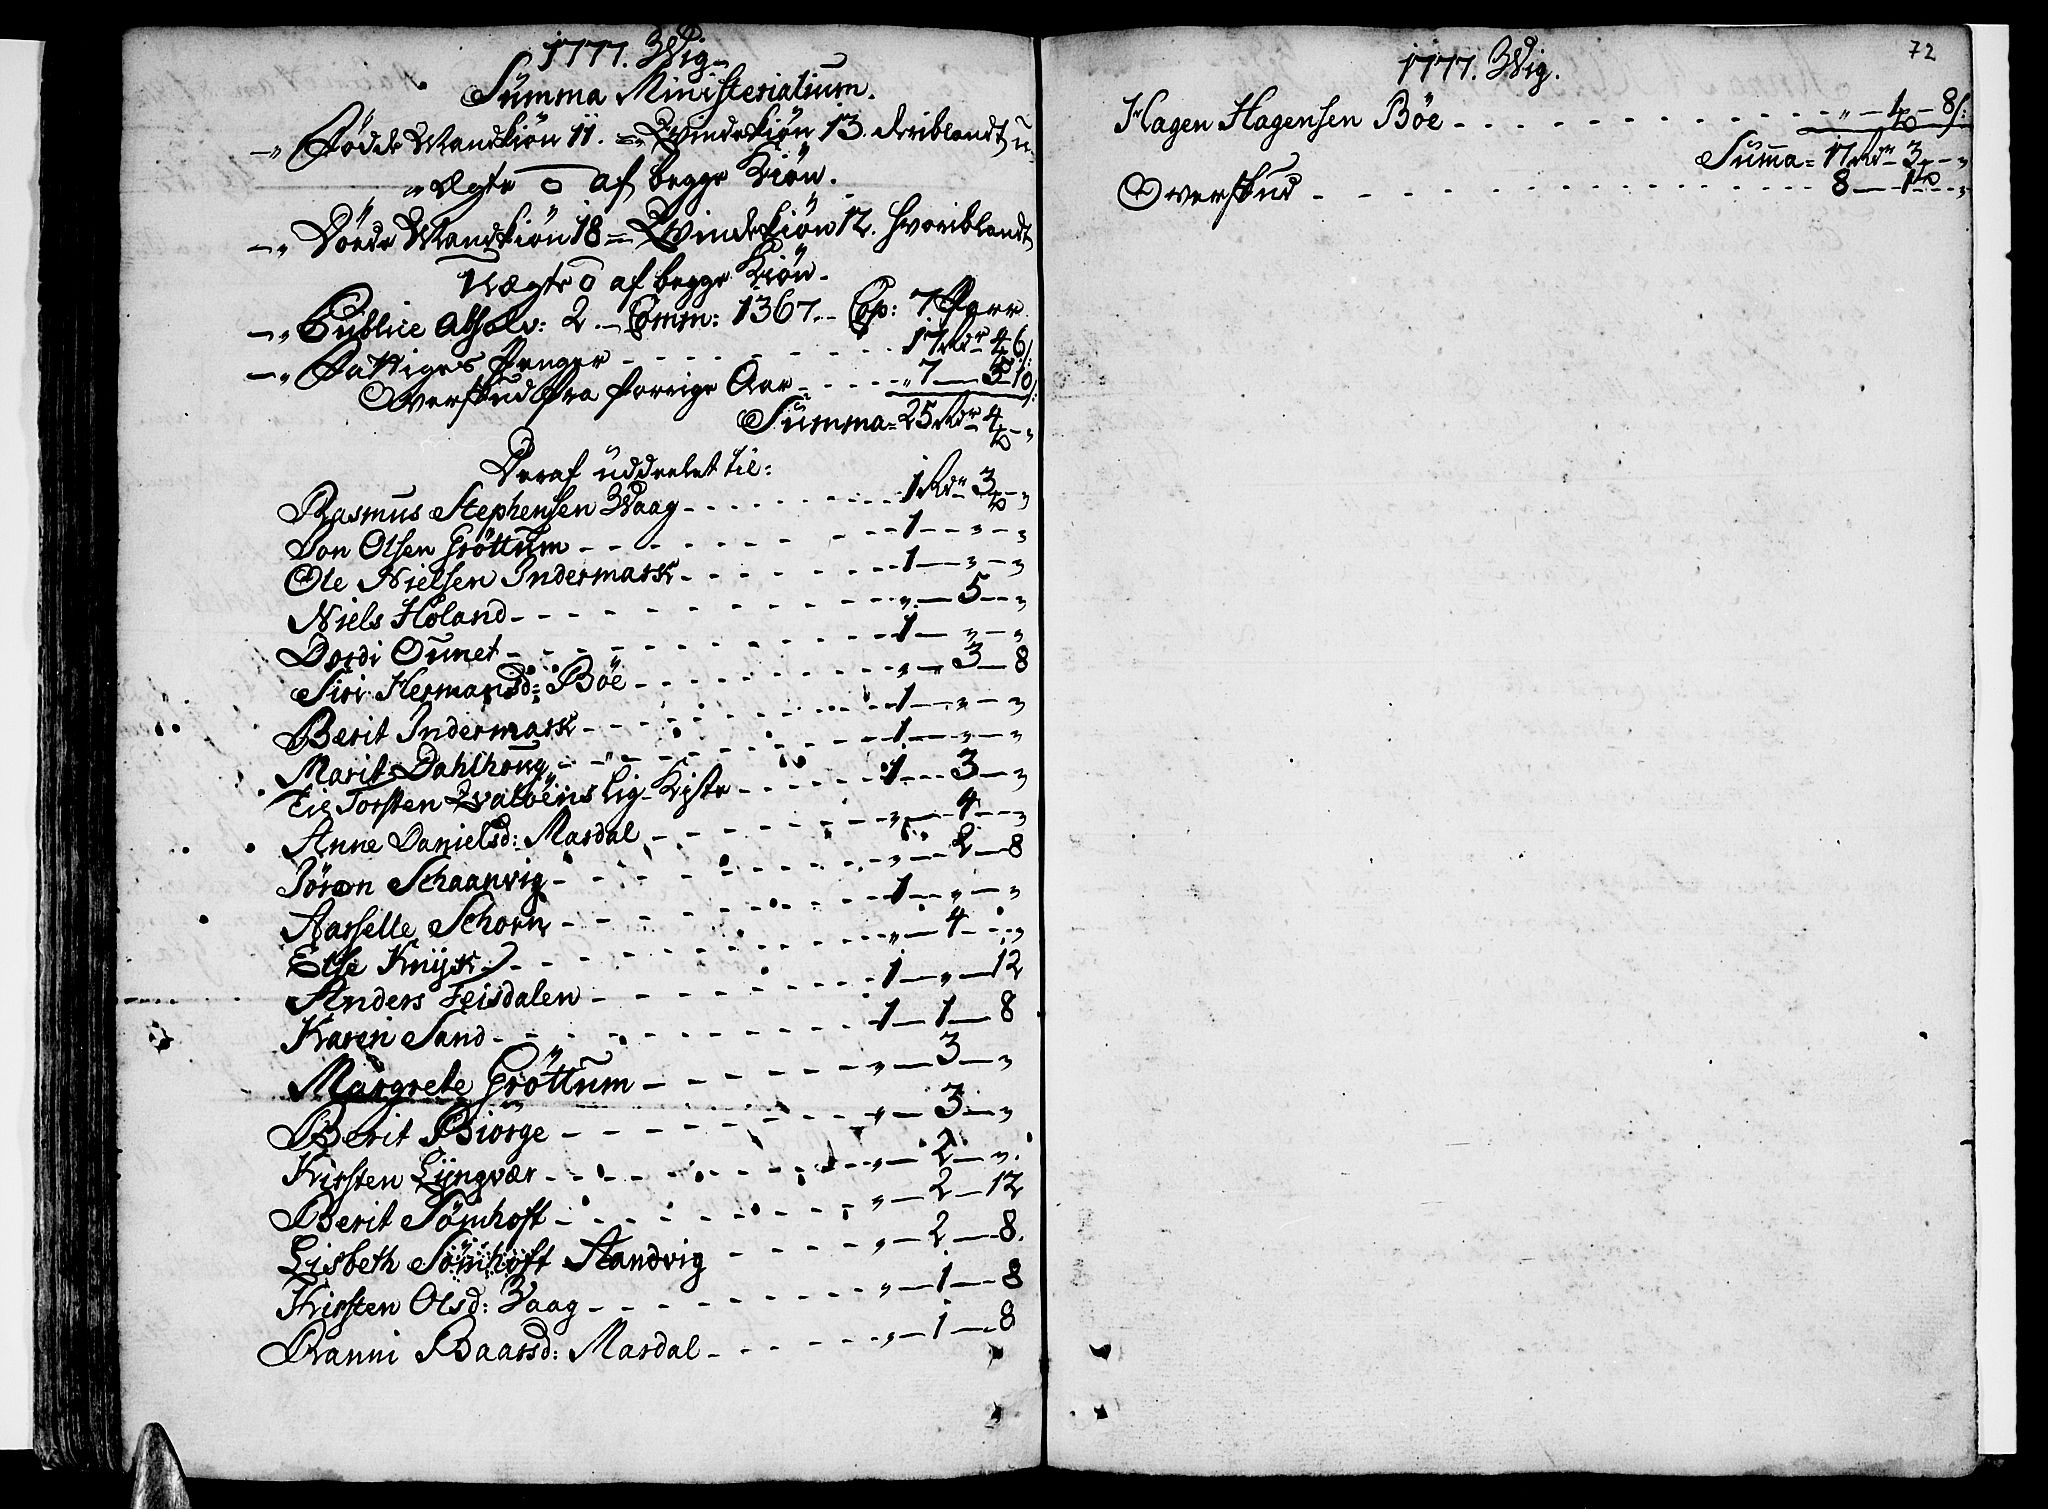 1777. Wig.
Summa Ministerialium.
„ Födde Mandkiön 11. = Qvindekiön 13. deriblandt u-
„ægte 0 af begge Kiön.
„ Döede Mandkiön 18 = Qvindekiön 12. hvoriblandt
Uægte 0 af begge Kiön.
„ Publice Absolv: 2. Comm: 1367. Cop: 7 Parr
„ Fattiges Penger - - - 17 Rdr 4 6 s:
Overskud fra forrige Aar - - - 7 — 3 10 s:
Summa = 25 Rdr 4 - „
Deraf uddeelet til:
Rasmus Stephensen Waag - - - 1 Rdr 3 - „
Jon Olsen Gröttum - - - 1 - „ - „
Ole Nielsen Indermark - - - 1 - „ - „
Niels Höland - - - „ - 5 - „
Dordi Ounet - - - 1 - „ - „
Siri Hermansd: Böe - - - „ - 3 - 8
Berit Indermark - - - 1 - „ - „
Marit Dahlhoug - - - 1 - „ - „
Til Torsten Qvalöens Lig-Kiste - - - 1 - 3 - „
Anne Danielsd: Mardal - - - „ - 4 - „
Jören Schaanvig - - - „ - 2 - 8
Aasselle Schorn - - - 1 - „ - „
Else Knÿk - - - „ - 4 - „
Anders Teisdalen - - - 1 - „ - 12
Karen Sand - - - 1 - 1 - 8
Margrete Gröttum - - - „ - 3 - „
Berit Biörge - - - „ - 3 - „
Kirsten Lÿngvær - - - „ - 2 - „
Berit Sömhoft - - - „ - 2 - 12
Lisbeth Sömhoft Standvig - - - „ - 2 - 8.
Kirsten Olsd: Vaag - - - „ - 1 - 8
Ranni Baarsd: Mardal - - - „ - 1 - 8
72
1777. Wig.
Hagen Hagensen Böe - - - „ - 1 - 8 s:
Summa = 17 Rdr 3 - „
Overskud - - - 8 - 1 - „